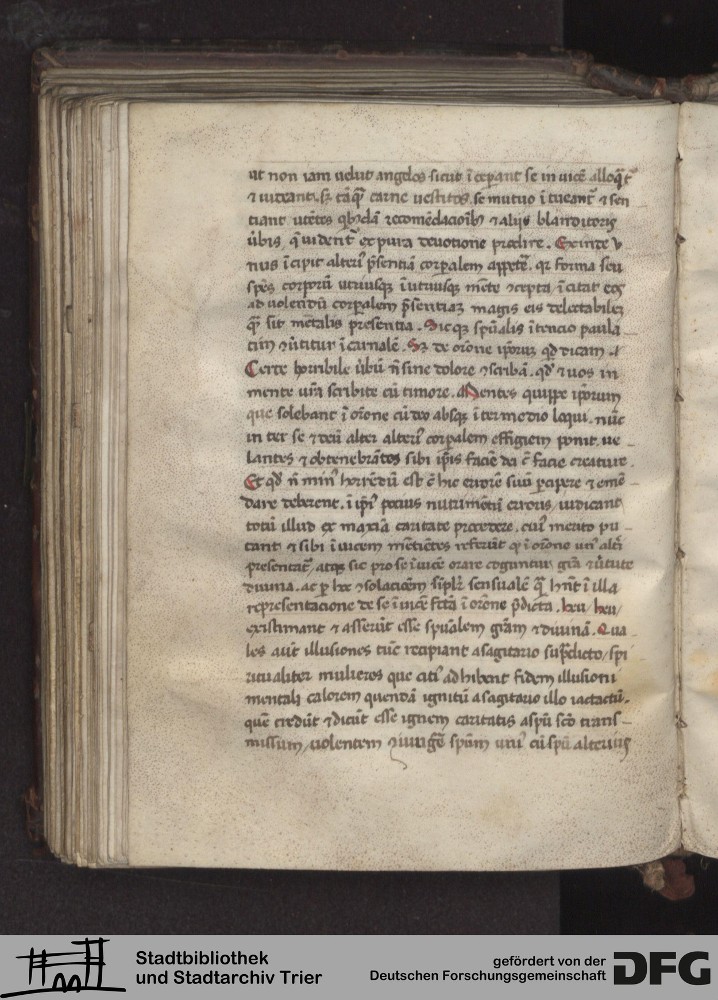 ut non iam uelut angelos sicut īceperant se in uicē alloqāt̄
⁊ uideant. sȝ tāqȝ carne uestitos. se mutuo ītueant̄ ⁊ sen
tiant utētes qͥbꝰdā recomēdacioībꝰ ⁊ alijs blanditorijs
ūbis, q̄ uident̄ ex pura deuotione prodire. Exinde v
nus īcipit alteriꝰ p̄sentiā corꝑalem appetē. qꝛ forma seu
spēs corporū utriusqȝ ī utriusqȝ mēte recepta īcitat eos
ad uolendū corꝑalem p̄sentiaȝ magis eis delectabilem
qȝ sit mētalis presentia. Sicqȝ spūalis ītencio paula
tim ꝯūtitur ī carnalē. Sȝ de orōne ipoꝝ qͥd dicam.
Certe horribile ūbū n̄ sine dolore ꝯscribā. qd̓ ⁊ uos in
mente vr̄a scribite cū timore. Mentes quippe ipoꝝum
que solebant ī orōne cū deo absqȝ ītermedio loqui. nūc
inter se ⁊ deū alter alteriꝰ corꝑalem effigiem ponit. ue
lantes ⁊ obtenebrātes sibi ip̄is faciē dei ē facie creature.
Et qd̓ n̄ minꝰ horrēdū est cū hic errorē suū ꝑaꝑere ⁊ emē
dare deberent. ī ip̄iꝰ pocius nutrimētū erroris, iudicant
totū illud ex maxīa caritate procedere. cuiꝰ merito pu
tant ⁊ sibi īuicem mētiētes referūt qꝫ ī orōne unꝰ alt̄i
presentat̄, atqȝ sic pro se īuicē orare coguntur grā ⁊ ūtute
diuina. ac ꝑ hoc ꝯsolacōem simplr̄ sensualē qȝ hn̄t ī illa
representacione de se īuicē fc̄ta ī orōne p̄dicta. heu heu
existimant ⁊ asserūt esse spūalem grām ⁊ diuinā. Qua
les aūt illusiones tūc recipiant a sagitario sup̄dicto, spi
ritualiter mulieres que citiꝰ adhibent fidem illusioni
mentali calorem quendā ignitū a sagitario illo iactatū.
quē credūt ⁊ dicūt esse ignem caritatis a spū sc̄o trans
missum, uolentem ꝯiungē spūm uniꝰ cū spū alterius
Stadtbibliothek
und Stadtarchiv Trier
gefördert von der
Deutschen Forschungsgemeinschaft
DFG